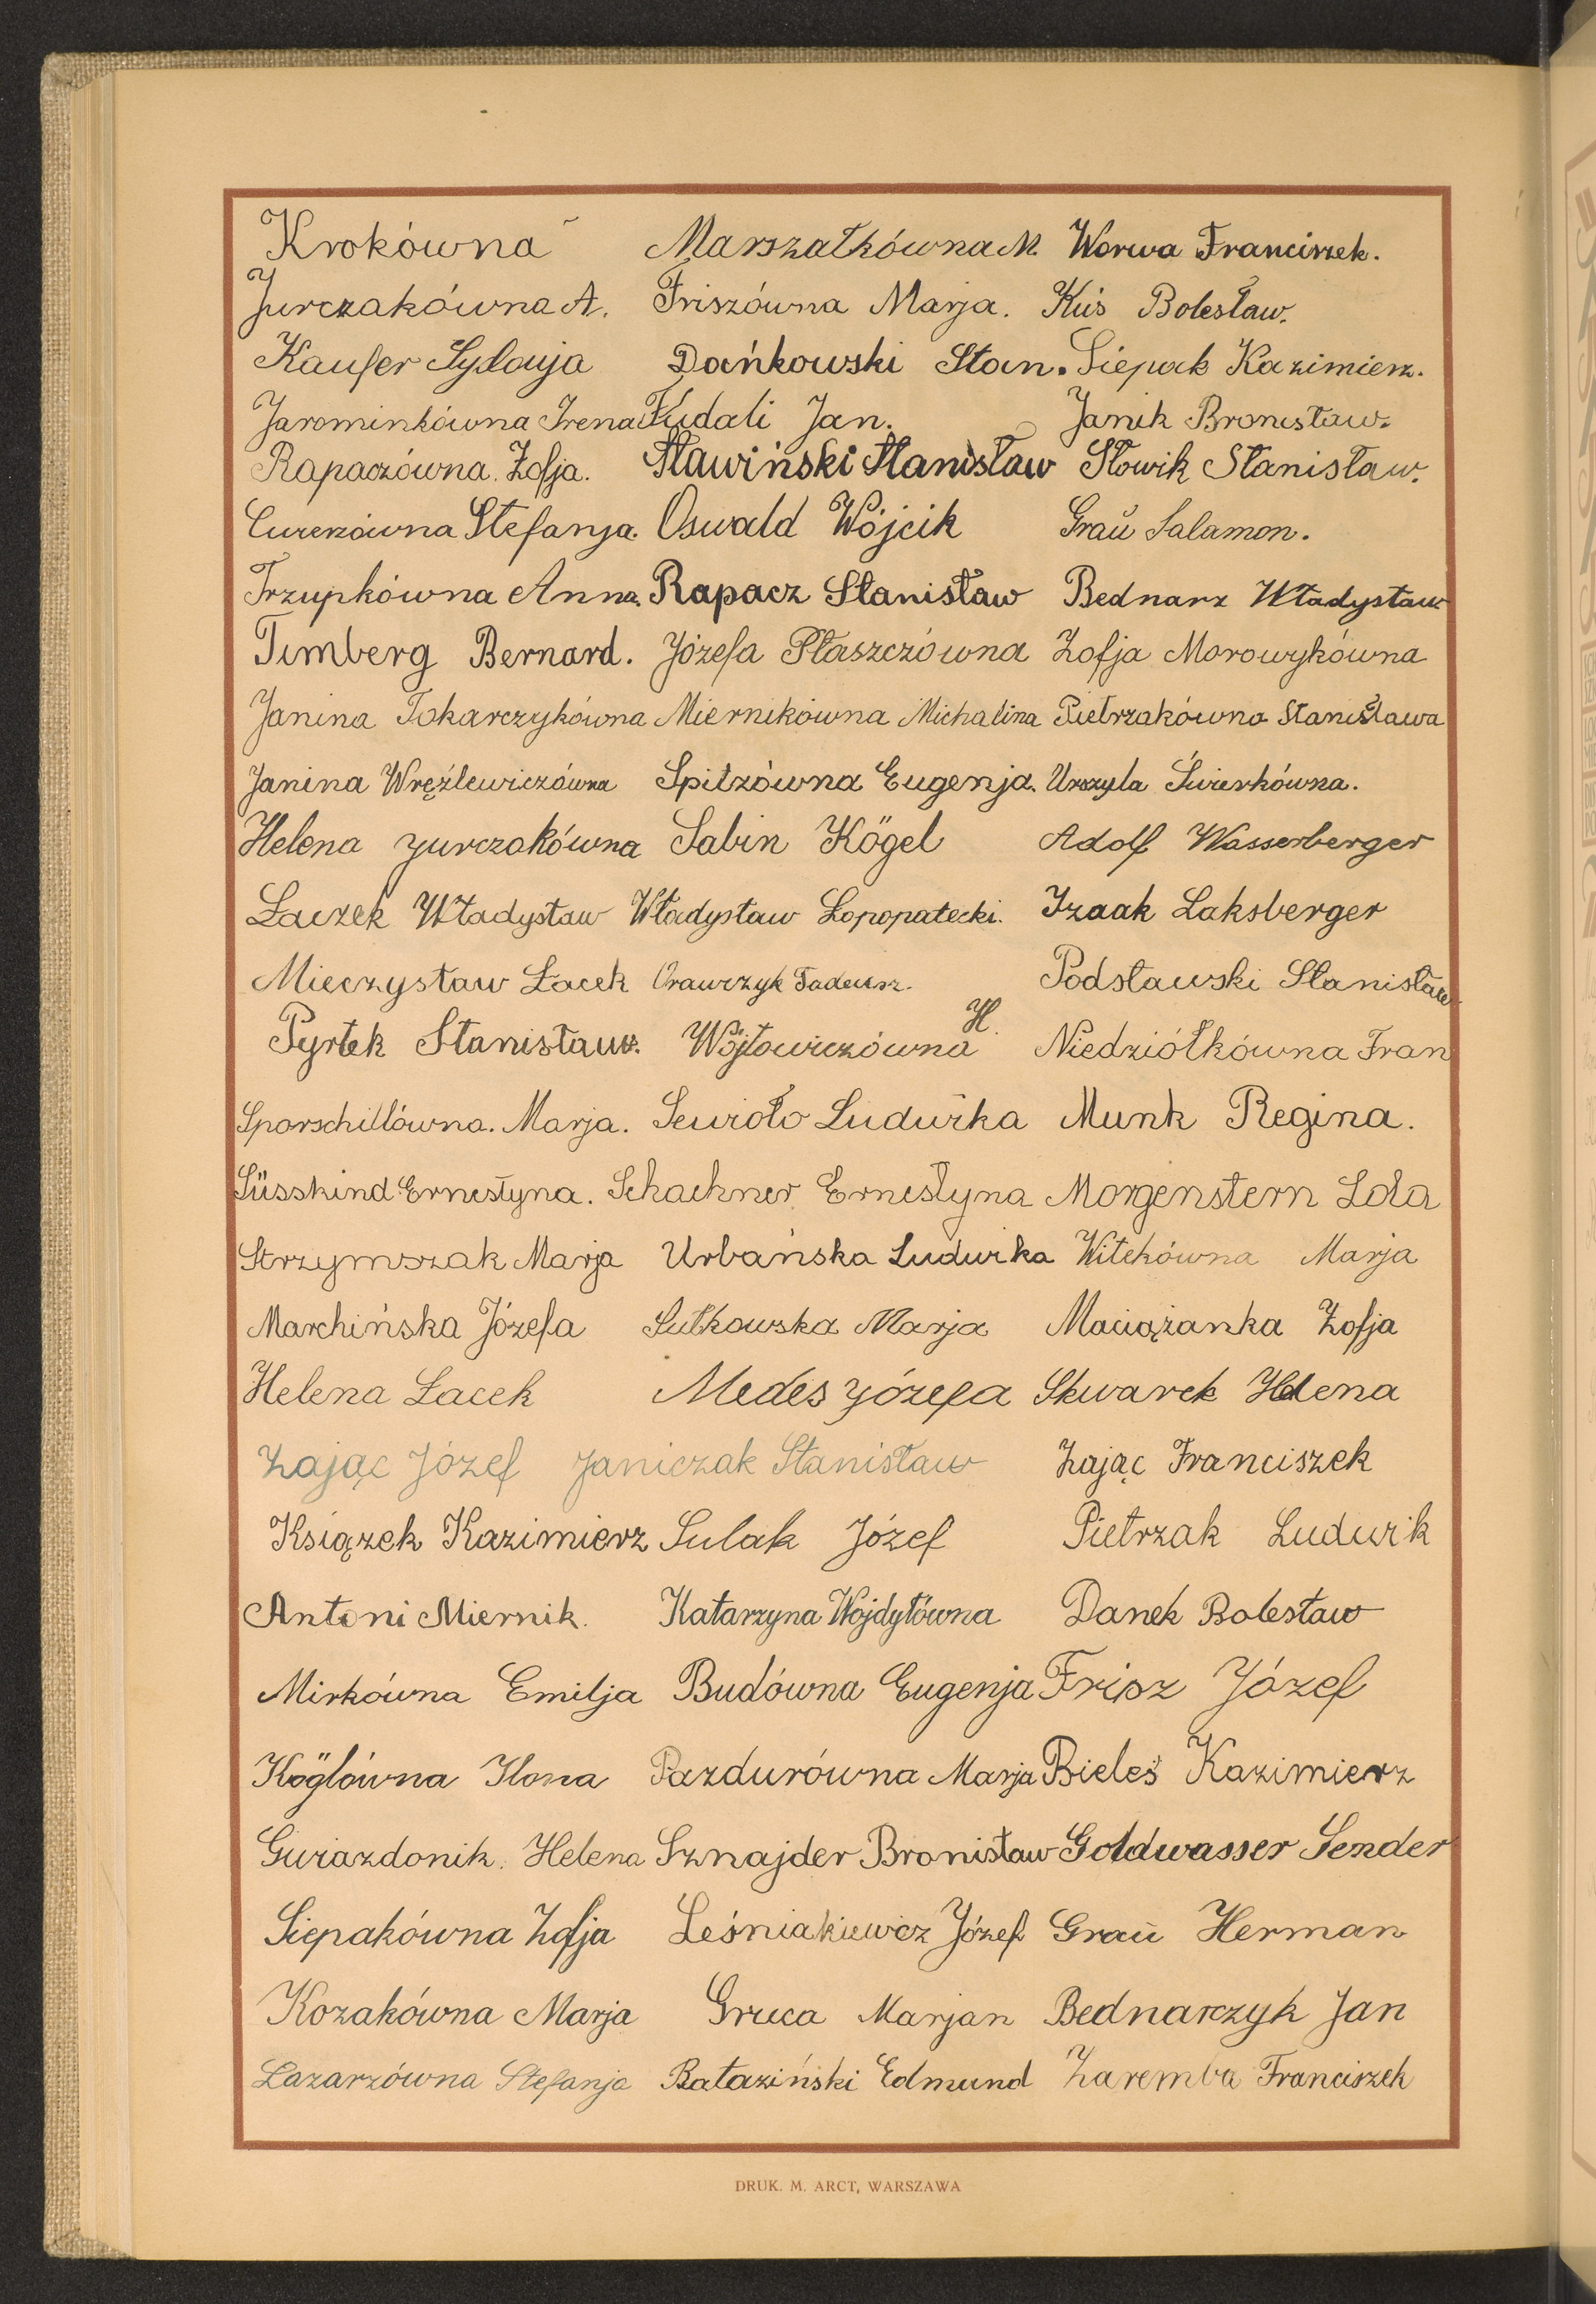 Krokówna Marszałkówna M. Worwa Franciszek.
Jurczakówna A. Friszówna Marja. Kuś Bolesław.
Kaufer Sylwja Dańkowski Stan. Siepak Kazimierz.
Jarominkówna Irena Kudali Jan. Janik Bronisław.
Rapaczówna. Zofja. Sławiński Stanisław Słowik Stanisław.
Stefanja. Oswald Wójcik Graü Salamon.
Trzupkówna Anna. Rapacz Stanisław Bednarz Władysław
Timberg Bernard. Józefa Płaszczówna Zofja Morowykówna
Janina Tokarczykówna Miernikówna Michalina Pietrzakówna Stanisława
Janina Wręźlewiczówna Spitzówna Eugenja. Urszyla Świerkówna.
Helena Jurczakówna Sabin Kögel Adolf Wasserberger
Łaczek Władysław Władysław Łopopatecki. Izaak Laksberger
Mieczysław Łacek Orawczyk Tadeusz. Podstawski Stanisław
Pyrtek Stanisław. Wójtowiczówna H. Niedziółkówna Fran
Sporschillówna. Marja. Sewioło Ludwika Munk Regina.
Süsskind Ernestyna. Schachner Ernestyna Morgenstern Lola
Strzymszak Marja Urbańska Ludwika Witkówna Marja
Marchińska Józefa Sułkowska Marja Maciążanka Zofja
Helena Łacek Medes Józefa Skwarek Helena
Zając Józef Janiczak Stanisław Zając Franciszek
Książek Kazimierz Sulak Józef Pietrzak Ludwik
Antoni Miernik. Katarzyna Wojdyłówna Danek Bolesław
Mirkówna Emilja Budówna Eugenja Frisz Józef
Köglówna Ilona Pazdurówna Marja Bieleś Kazimierz
Gwiazdonik. Helena Sznajder Bronisław Goldwasser Sender
Siepakówna Zofja Leśniakiewicz Józef Graü Herman
Kozakówna Marja Gruca Marjan Bednarczyk Jan
Łazarzówna Stefanja Rataziński Edmund Zaremba Franciszek
DRUK. M. ARCT, WARSZAWA